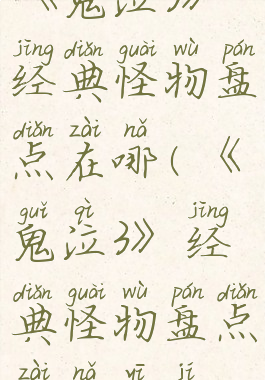 《鬼泣3》
jīng diǎn guài wù pán
经典怪物盘
diǎn zài nǎ
点在哪(《
guǐ qì jīng
鬼泣3》 经
diǎn guài wù pán diǎn
典怪物盘点
zài nǎ yī jí